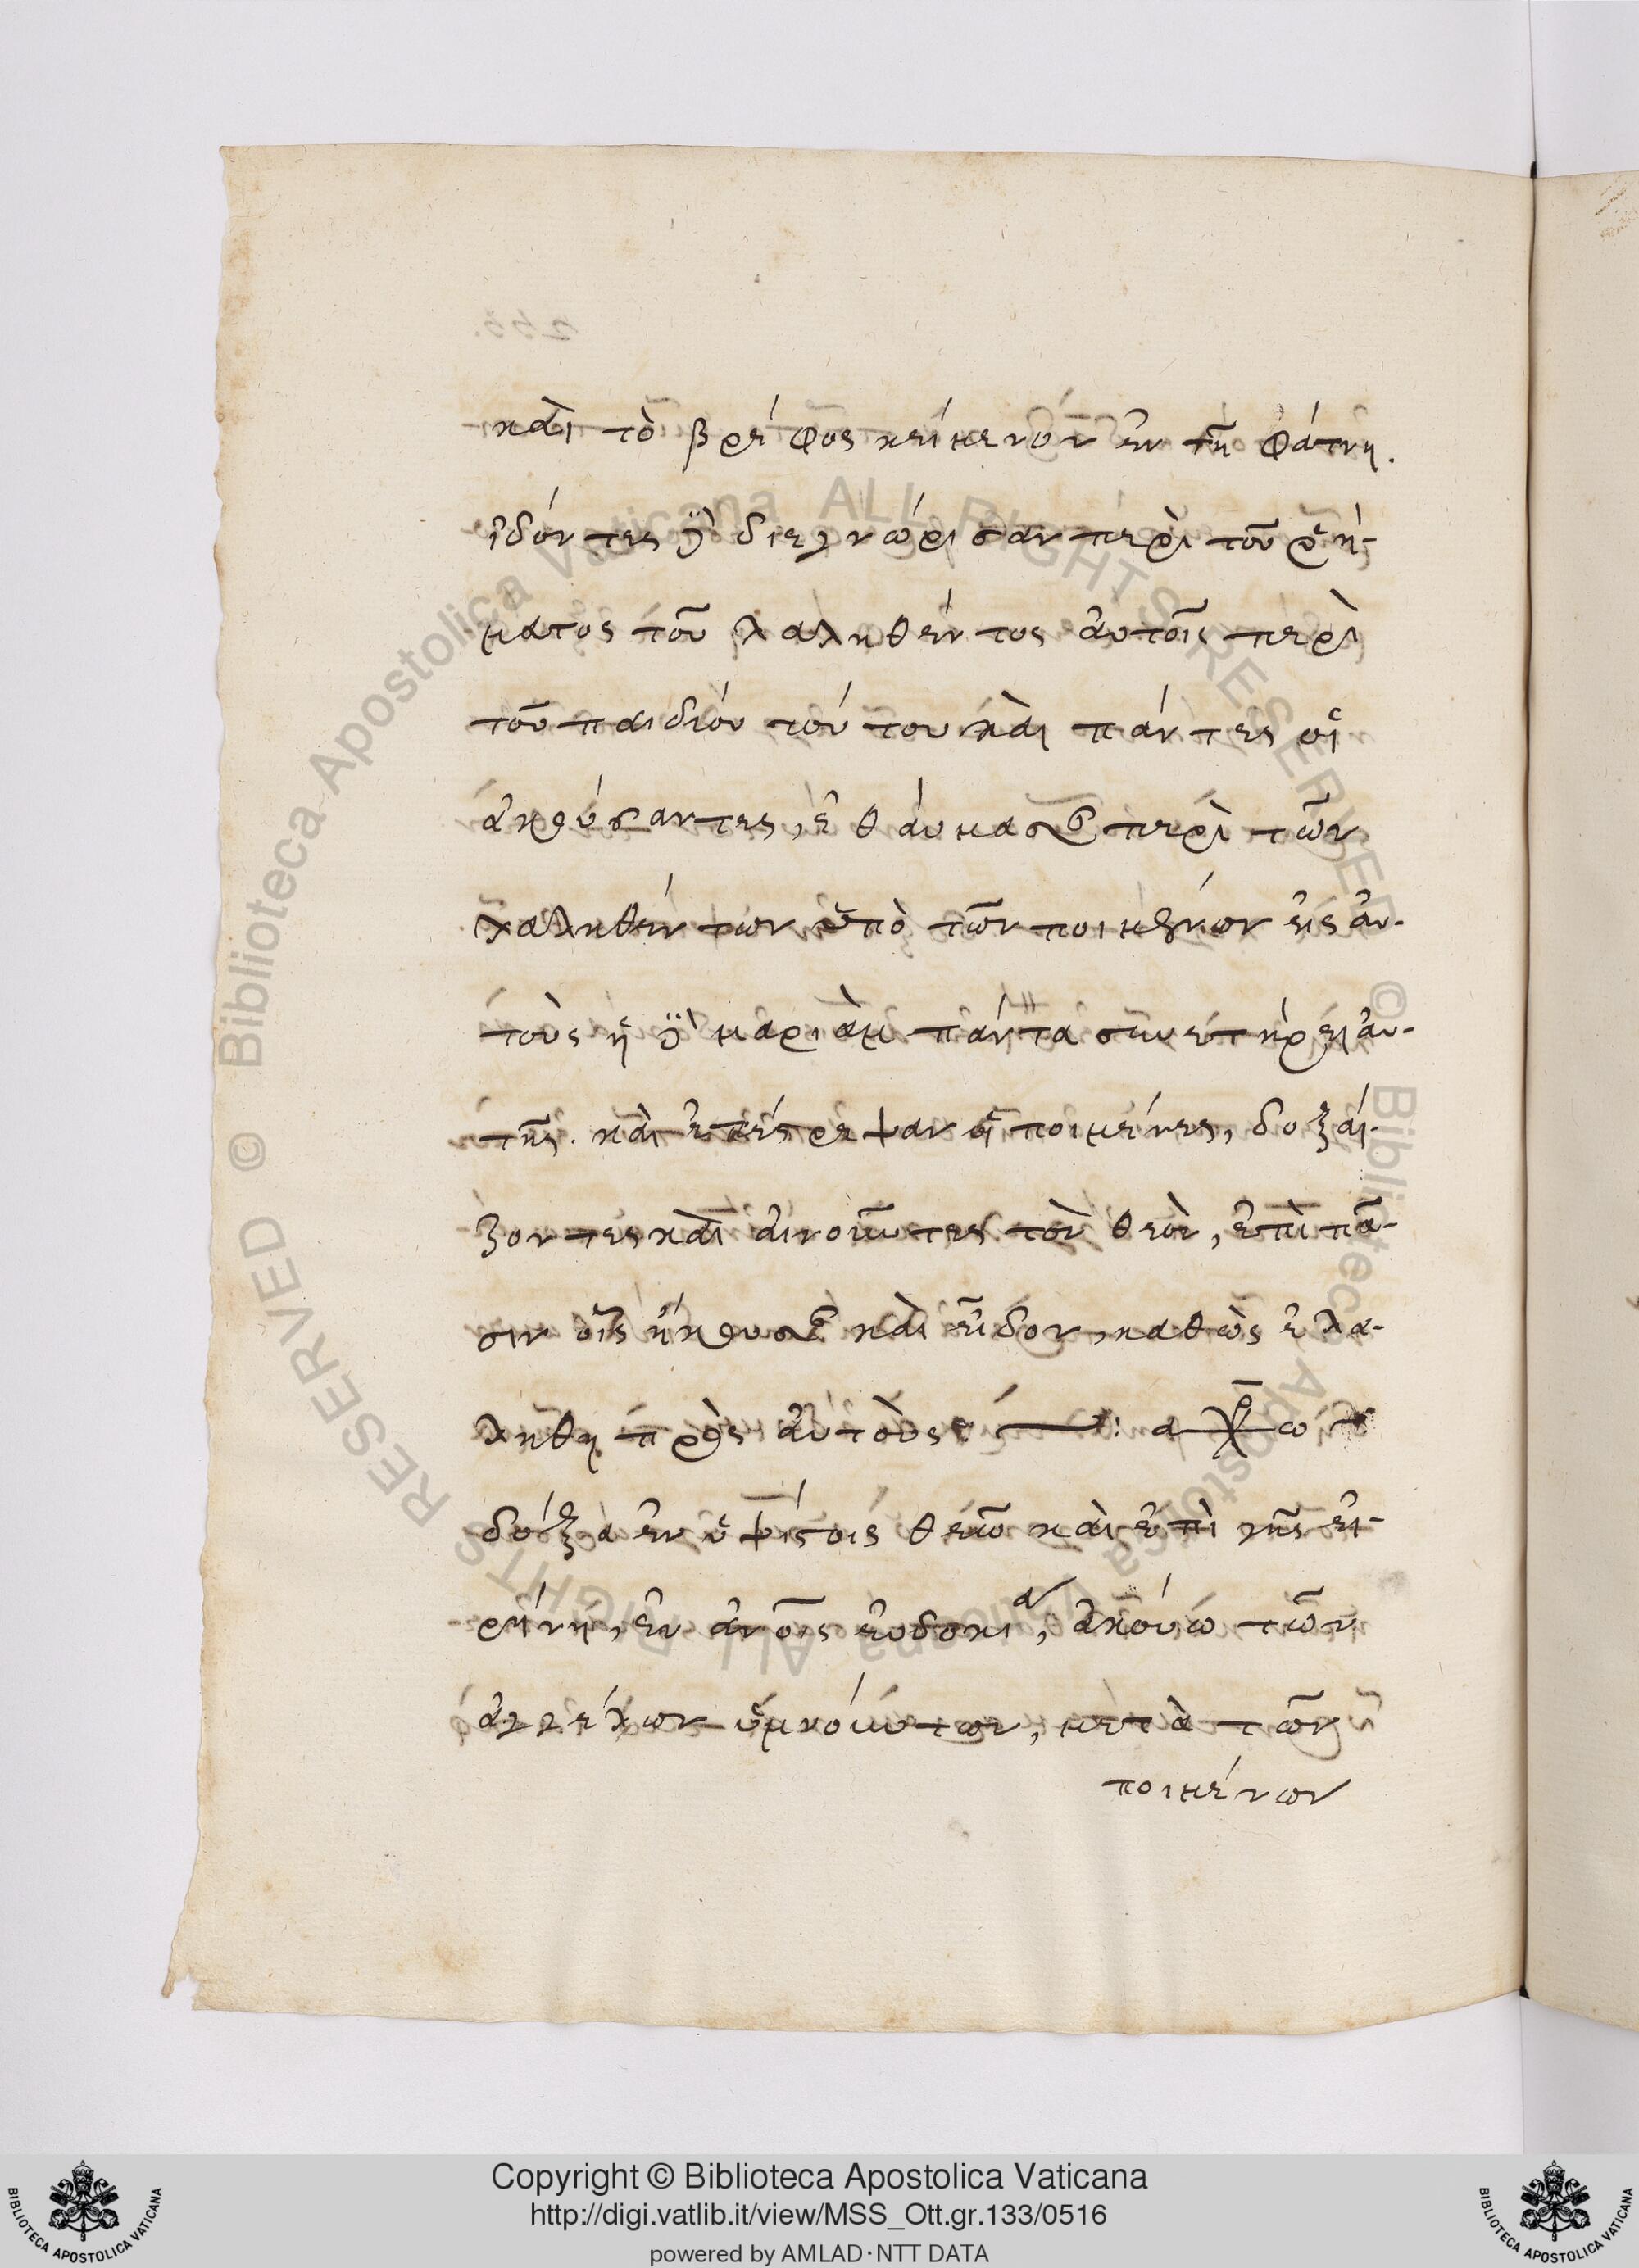 καὶ τὸ βρέφος κείμενον ἐν τῇ φάτνῃ.
ἰδόντες δὲ διεγνώρισαν περὶ τοῦ ῥή-
ματος τοῦ λαληθέντος αὐτοῖς περὶ
τοῦ παιδίου τούτου καὶ πάντες οἱ
ἀκούσαντες, ἐθάυμασαν περὶ τῶν
λαληθέντων ὑπὸ τῶν ποιμένων εἰς αὐ-
τοὺς ἡ δὲ μαριὰμ πάντα συνετήρει αὐ-
τῆς. καὶ ἐπέστρεψαν οἱ ποιμένες, δοξά-
ζοντες καὶ αἰνοῦντες τὸν θεὸν, ἐπὶ πᾶ-
σιν οἷς ἤκουσαν καὶ εἶδον, καθὼς ἐλα-
λήθη πρὸς αὐτοὺς:
δόξα ἐν ὑψίστοις θεῶ καὶ ἐπὶ γῆς εἰ-
ρήνη, ἐν ἀνοις εὐδοκία, ἀκούω τῶν
ἀγγέλων ὑμνούντων, μετὰ τῶν
ποιμένων
Copyright © Biblioteca Apostolica Vaticana
http://digi.vatlib.it/view/MSS_Ott.gr.133/0516
powered by AMLAD·NTT DATA
BIBLIOTECA APOSTOLICA VATICANA
BIBLIOTECA APOSTOLICA VATICANA
© Biblioteca Apostolica Vaticana ALL RIGHTS RESERVED
© Biblioteca Apostolica Vaticana ALL RIGHTS RESERVED